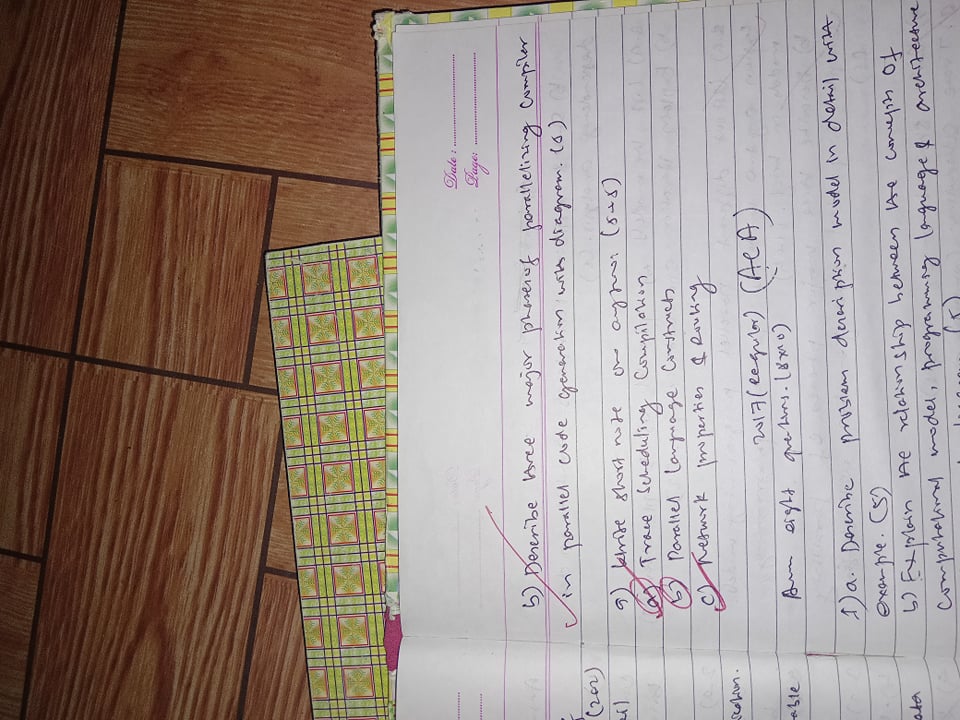 Date : ..........
Page: ..........
b) Describe three major phases of parallelizing compiler
in parallel code generation with diagram. (5)
9) Write short note on any two: (5+5)
a) Trace Scheduling Compilation
b) Parallel Language Constructs
c) Network properties & Routing
2017 (Regular) (ACA)
eight questions. (8x10)
1) a. Describe problem description model in detail with
example. (5)
b) Explain the relationship between the concepts of
computational model, programming language & architecture
(5)
(2x2)
ication.
able
ata